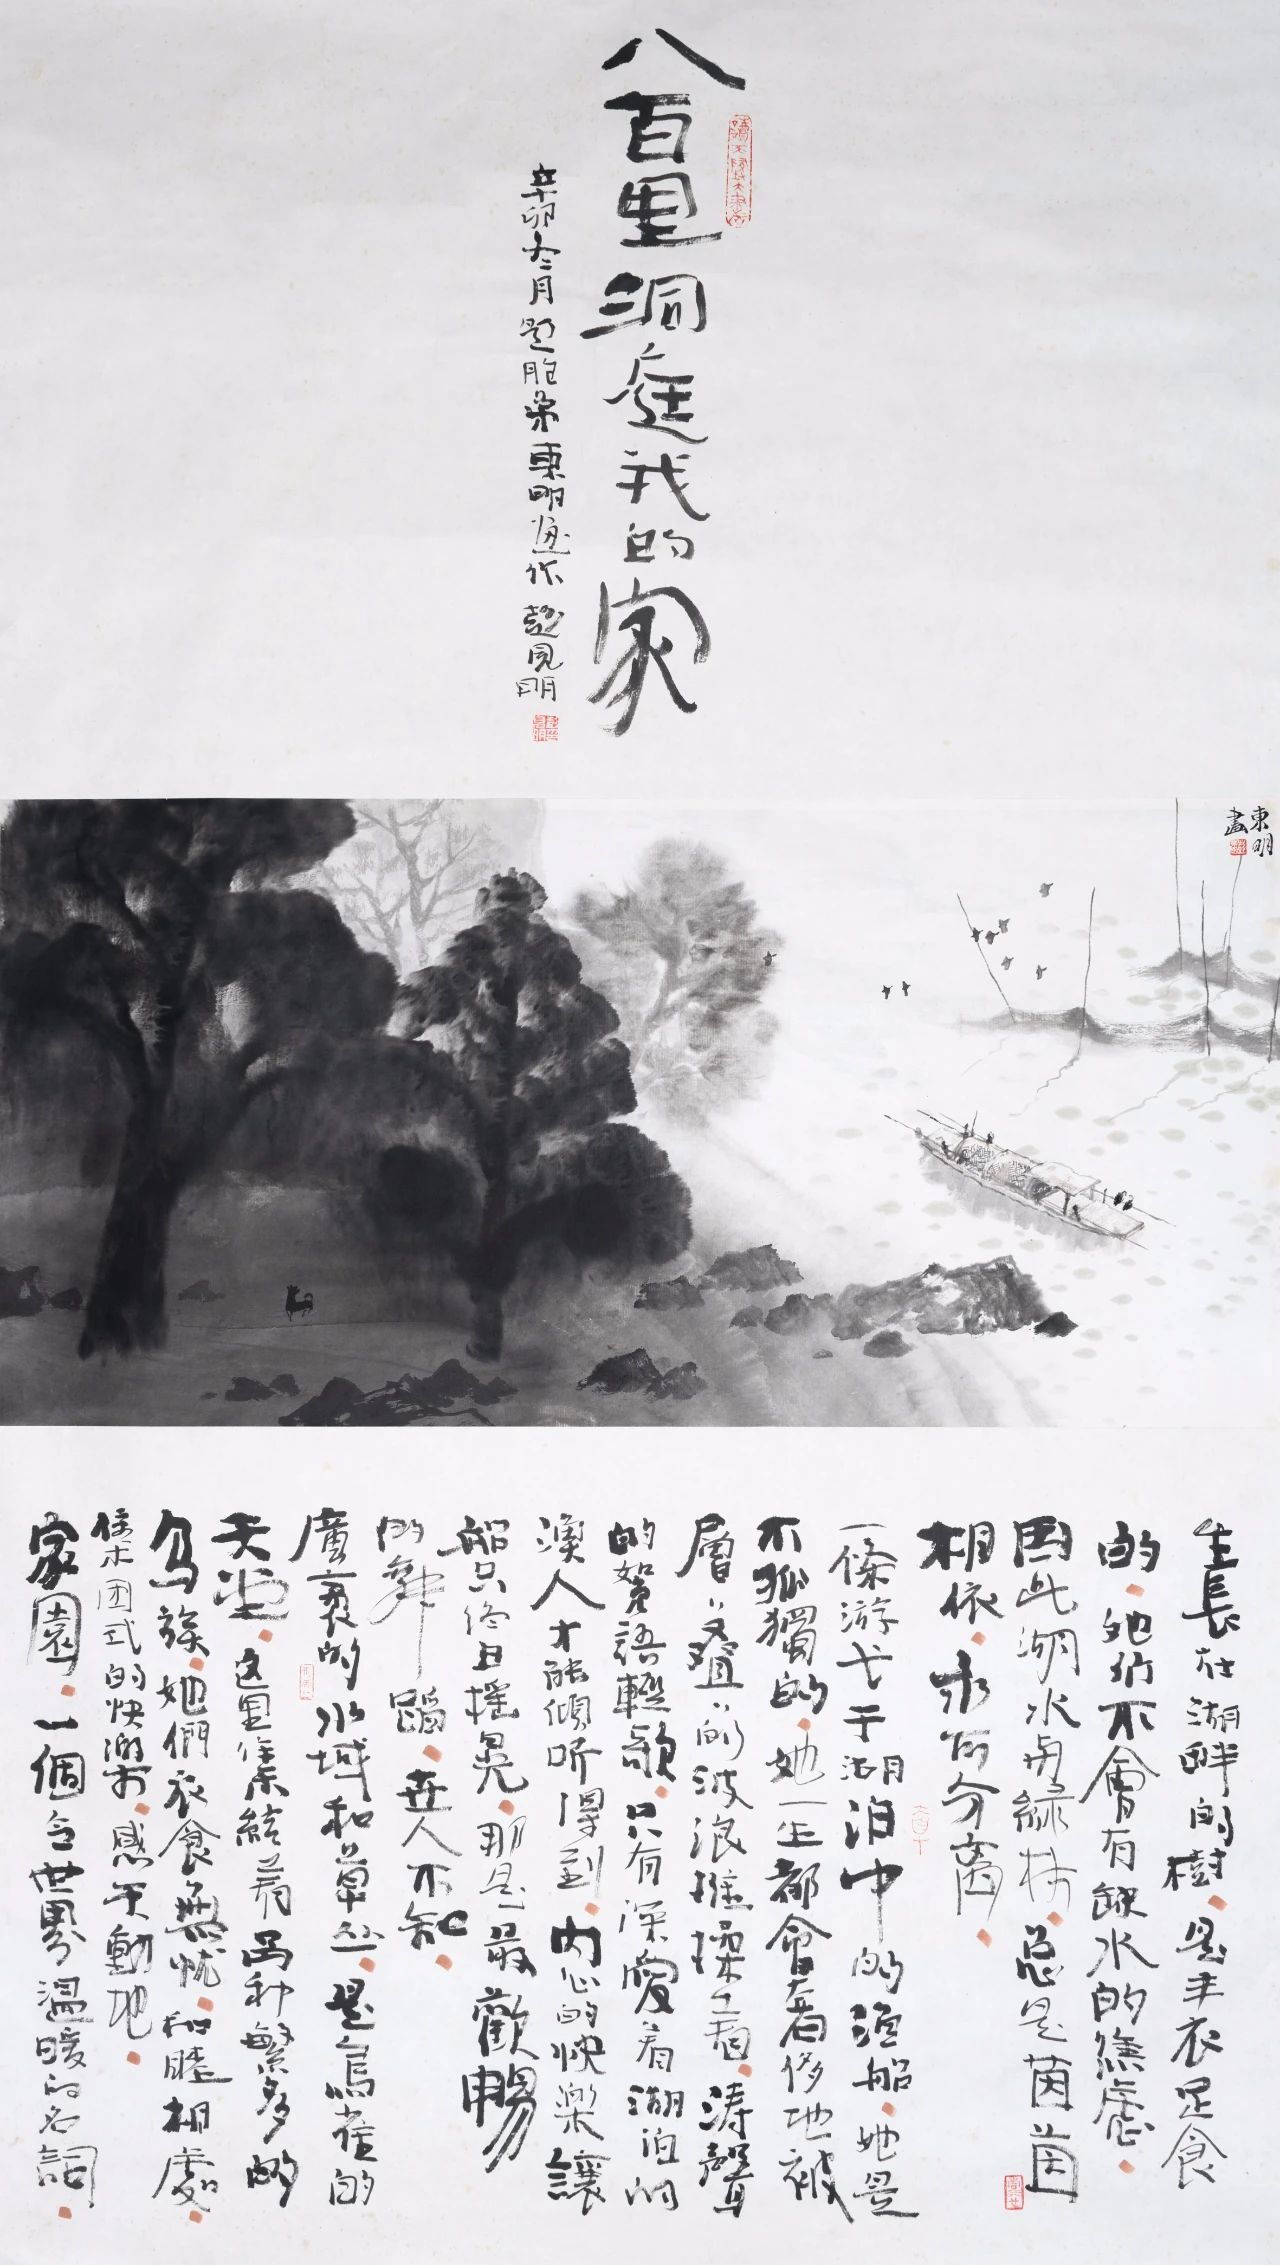 八百里洞庭我的家
辛卯冬月题胞弟東明画作 趙見明
東明
畫
生長在湖畔的樹，是丰衣足食
的，她们不會有缺水的焦慮，
因此湖水與綠树，总是茵茵
相依，永不分离。
一條游弋于湖泊中的渔船，她是
不孤獨的，她一生都會奢侈地被
層層叠叠的波浪推揉着，涛聲
的絮語輕歌，只有深愛着湖泊的
漁人才能傾听得到，内心的快樂讓
船只終日摇晃，那是最歡暢
的舞蹈，世人不知。
廣袤的水域和草丛，是鳥雀的
天堂，这里集結着品种繁多的
鸟族，她們衣食無忧，和睦相處，
集团式的快樂，感天動地。
家園，一個令世界温暖的名詞。